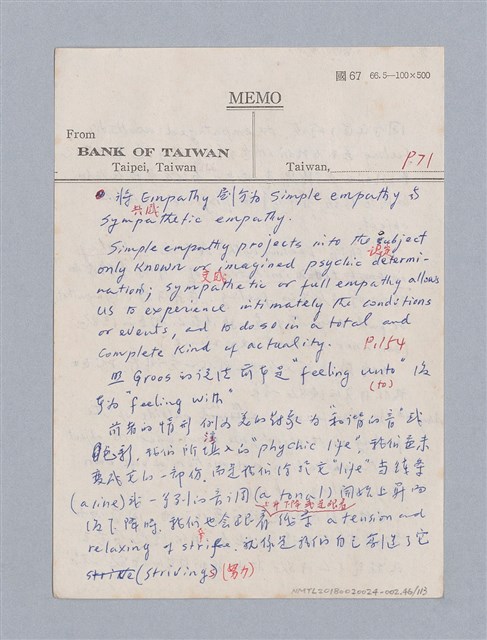 國 67 66.5—100×500
MEMO
From
BANK OF TAIWAN
Taipei, Taiwan
Taiwan,
P.71
將 Empathy 劃分為 Simple empathy 與
共感
Sympathetic empathy.
Simple empathy projects into the subject
only known or imagined psychic determi-
nations; sympathetic or full empathy allows
us to experience intimately the conditions
or events, and to do so in a total and
complete kind of actuality. P.154
Groos 的說法前半是 "feeling unto" 後
(to)
為 "feeling with"
前者的情形例如美的對象為 "和諧的音" 或
色彩, 我們所填入的 "phychic life", 我們並未
變成它的一部份, 而是我們給於它 "life"
(a line) 或一系列的音調 (a tonal) 開始上昇而
後下降時, 我們也會跟着 a tension and
relaxing of strife. 就像是我們自己創造了它
strike (strivings) (努力)
NMTL20180020024-002.46/113